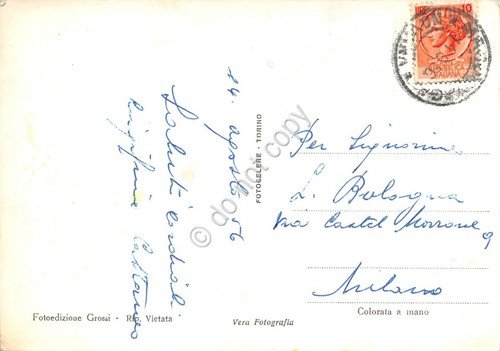 14 agosto 56
Saluti cordiali
Cattaneo
FOTOCELERE - TORINO
10
Per Signorina
L. Bologna
Via Castel Morrone 9
Milano
Fotoedizione Grossi - Rip. Vietata
Vera Fotografia
Colorata a mano
do not copy